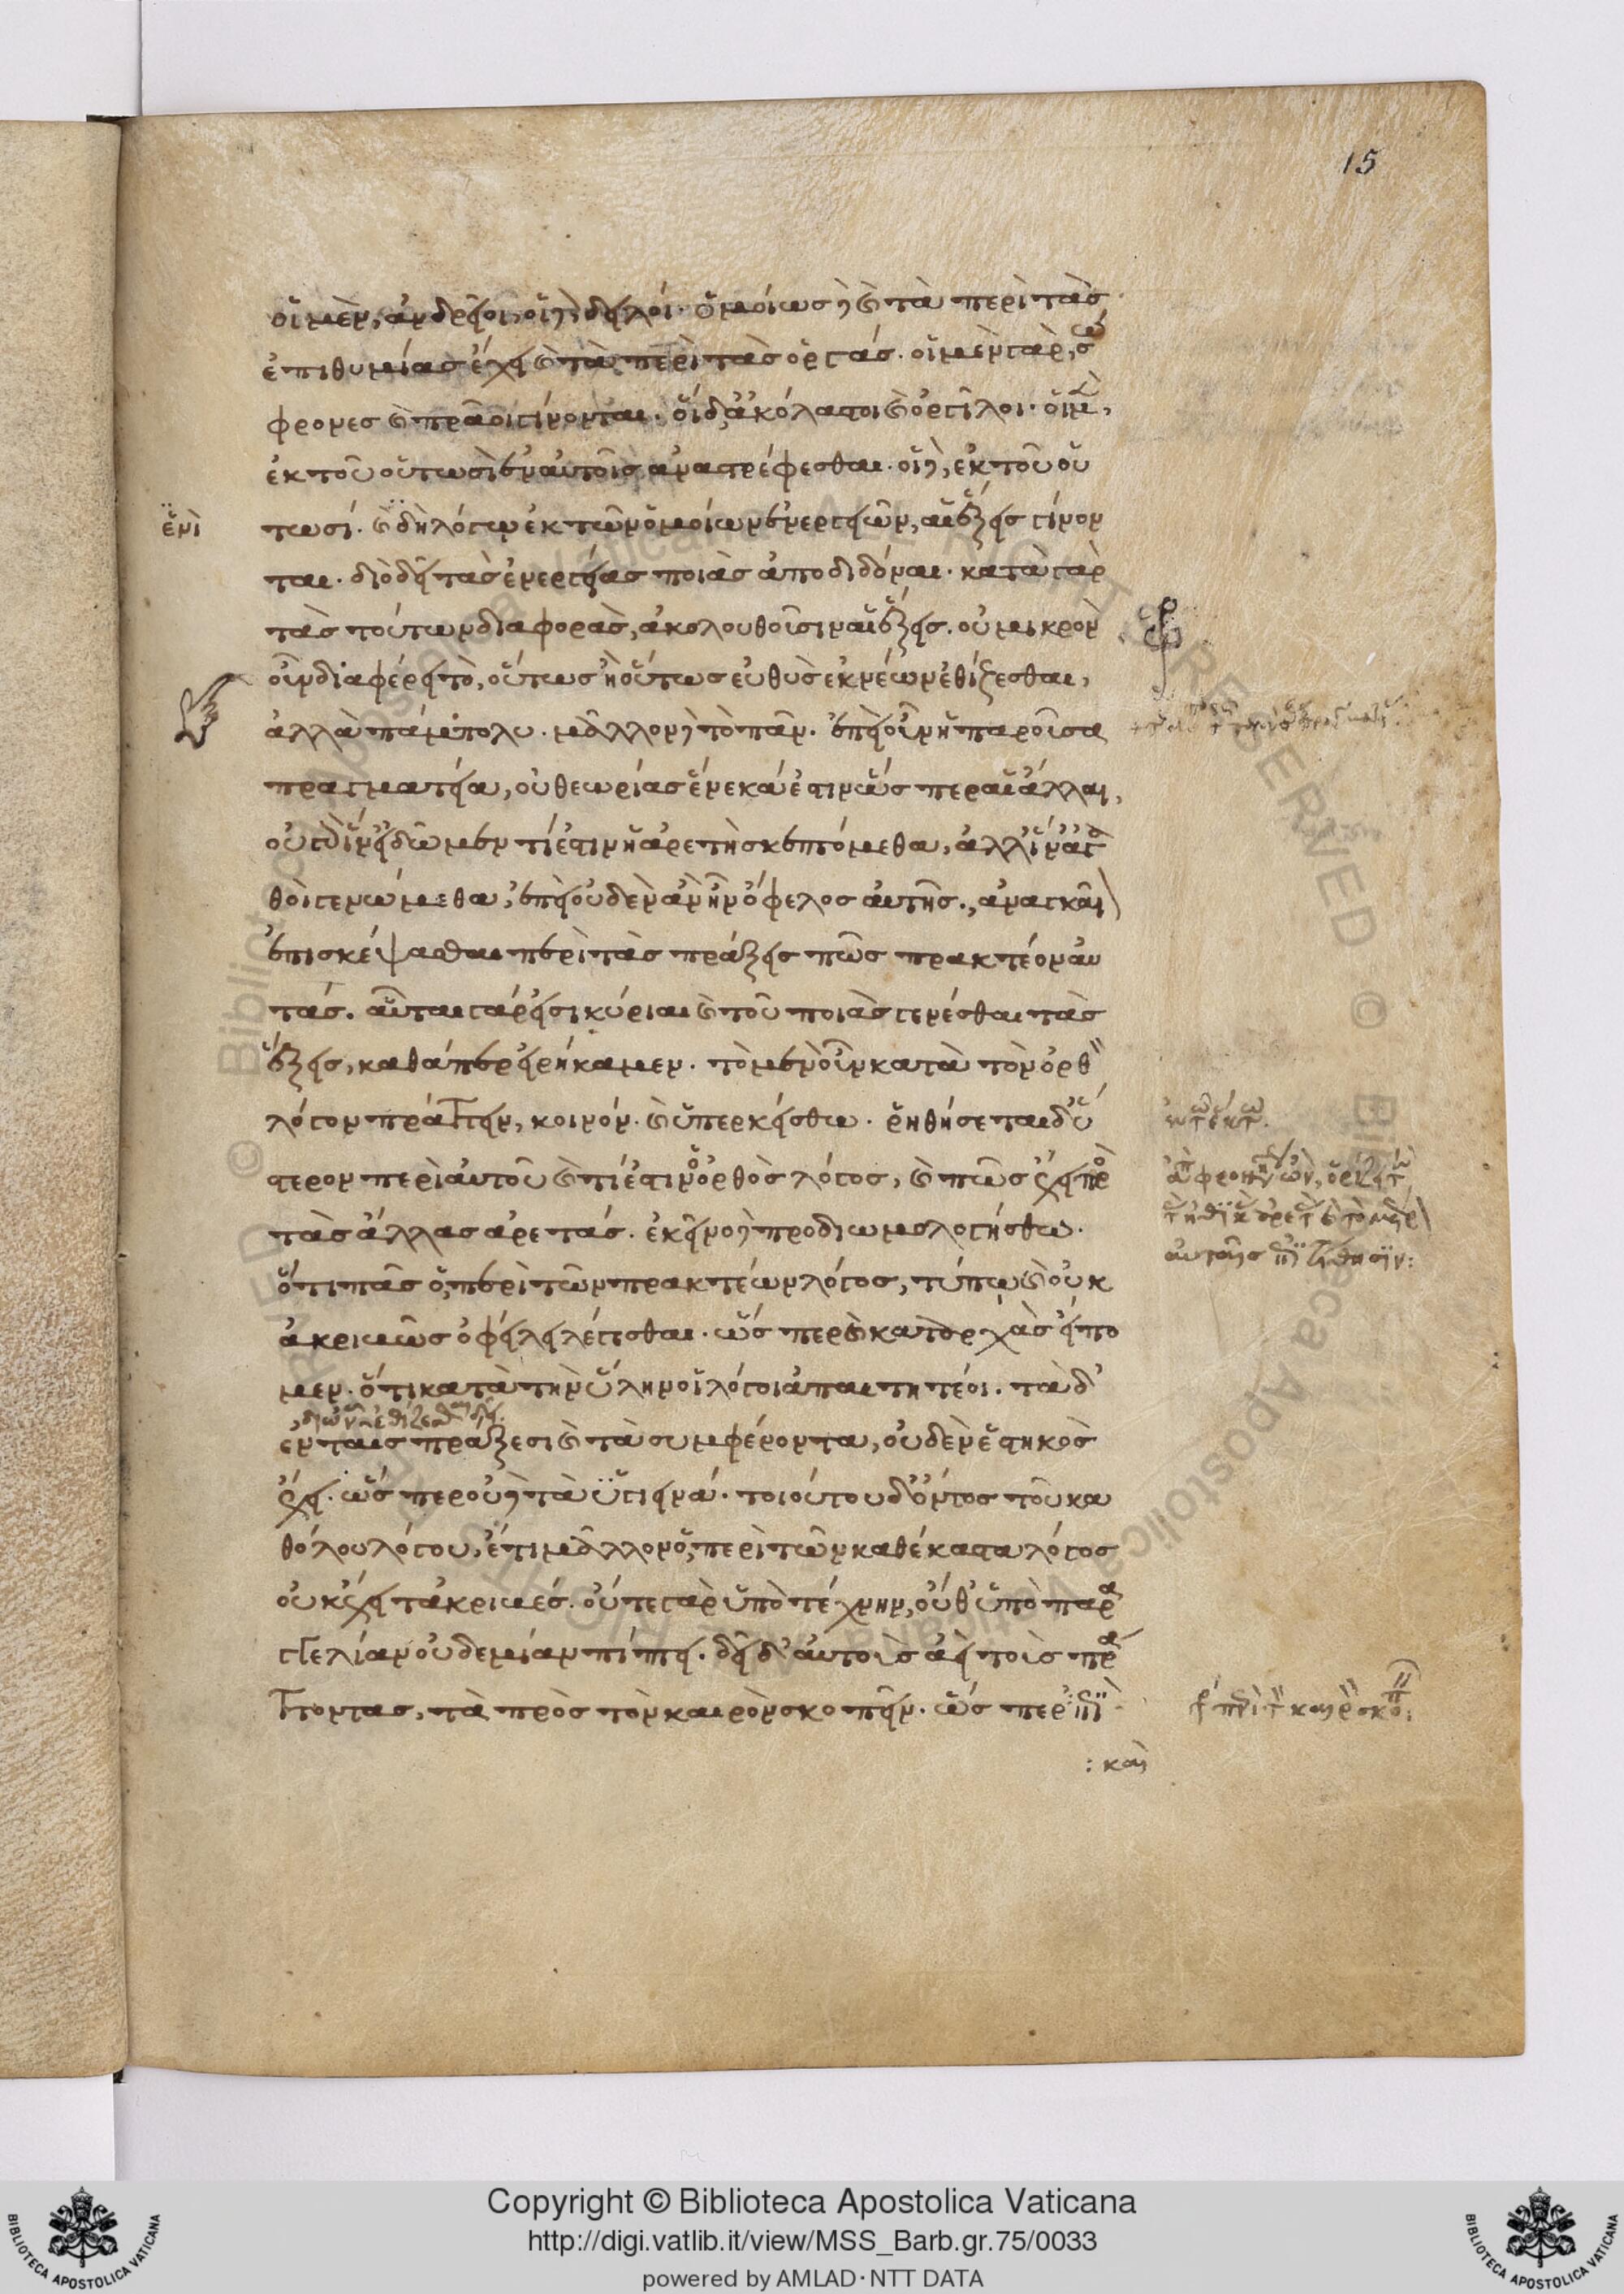 15
οἱ μὲν, ἀνδρεῖοι, οἱ δὲ, δειλοί. ὁμοίως δὲ καὶ τὰ περὶ τὰς
ἐπιθυμίας ἔχει καὶ τὰ περὶ τὰς ὀργάς. οἱ μὲν γὰρ, σώ
φρονες καὶ πρᾶοι γίνονται. οἱ δ' ἀκόλαστοι καὶ ὀργίλοι. οἱ μὲν,
ἐκ τοῦ οὑτωσὶ ἐν αὐτοῖς ἀναστρέφεσθαι. οἱ δὲ, ἐκ τοῦ οὑ
τωσί. καὶ δὴ λόγῳ ἐκ τῶν ὁμοίων ἐνεργειῶν, αἱ ἕξεις γίνον
ται. διὸ δεῖ τὰς ἐνεργείας ποιὰς ἀποδιδόναι. κατὰ γὰρ
τὰς τούτων διαφορὰς, ἀκολουθοῦσιν αἱ ἕξεις. οὐ μικρὸν
οὖν διαφέρει τὸ, οὕτως ἢ οὕτως εὐθὺς ἐκ νέων ἐθίζεσθαι,
ἀλλὰ πάμπολυ. μᾶλλον δὲ τὸ πᾶν. ἐπεὶ οὖν ἡ παροῦσα
πραγματεία, οὐ θεωρίας ἕνεκά ἐστιν ὥσπερ αἱ ἄλλαι,
οὐ γὰρ ἵν' εἰδῶμεν τί ἐστιν ἡ ἀρετὴ σκεπτόμεθα, ἀλλ' ἵν' ἀγα
θοὶ γενώμεθα, ἐπεὶ οὐδὲν ἂν ἦν ὄφελος αὐτῆς., ἀναγκαῖ
ἐπισκέψασθαι περὶ τὰς πράξεις πῶς πρακτέον αὐ
τάς. αὗται γάρ εἰσι κύριαι καὶ τοῦ ποιὰς γενέσθαι τὰς
ἕξεις, καθάπερ εἰρήκαμεν. τὸ μὲν οὖν κατὰ τὸν ὀρθὸν
λόγον πράττειν, κοινόν. καὶ ὑπερκείσθω. ῥηθήσεται δ' ὕ
στερον περὶ αὐτοῦ καὶ τί ἐστιν ὁ ὀρθὸς λόγος, καὶ πῶς ἔχει πρὸς
τὰς ἄλλας ἀρετάς. ἐκεῖνο δὲ προδιωμολογήσθω.
ὅτι πᾶς ὁ, περὶ τῶν πρακτέων λόγος, τύπῳ καὶ οὐκ
ἀκριβῶς ὀφείλει λέγεσθαι. ὥσπερ καὶ κατ' ἀρχὰς εἴπο
μεν. ὅτι κατὰ τὴν ὕλην οἱ λόγοι ἀπαιτητέοι. τὰ δ'
ἐν ταῖς πράξεσι καὶ τὰ συμφέροντα, οὐδὲν ἑστηκὸς
ἔχει. ὥσπερ οὐδὲ τὰ ὑγιεινά. τοιούτου δ' ὄντος τοῦ κα
θόλου λόγου, ἔτι μᾶλλον ὁ, περὶ τῶν καθέκαστα λόγος
οὐκ ἔχει τἀκριβές. οὔτε γὰρ ὑπὸ τέχνην, οὔθ' ὑπὸ παρα
γγελίαν οὐδεμίαν πίπτει. δεῖ δ' αὐτοὺς ἀεὶ τοὺς πρά
ττοντας, τὰ πρὸς τὸν καιρὸν σκοπεῖν. ὥσπερ ἐπὶ
: καὶ
ἑνὶ
Copyright © Biblioteca Apostolica Vaticana
http://digi.vatlib.it/view/MSS_Barb.gr.75/0033
powered by AMLAD·NTT DATA
BIBLIOTECA APOSTOLICA VATICANA
BIBLIOTECA APOSTOLICA VATICANA